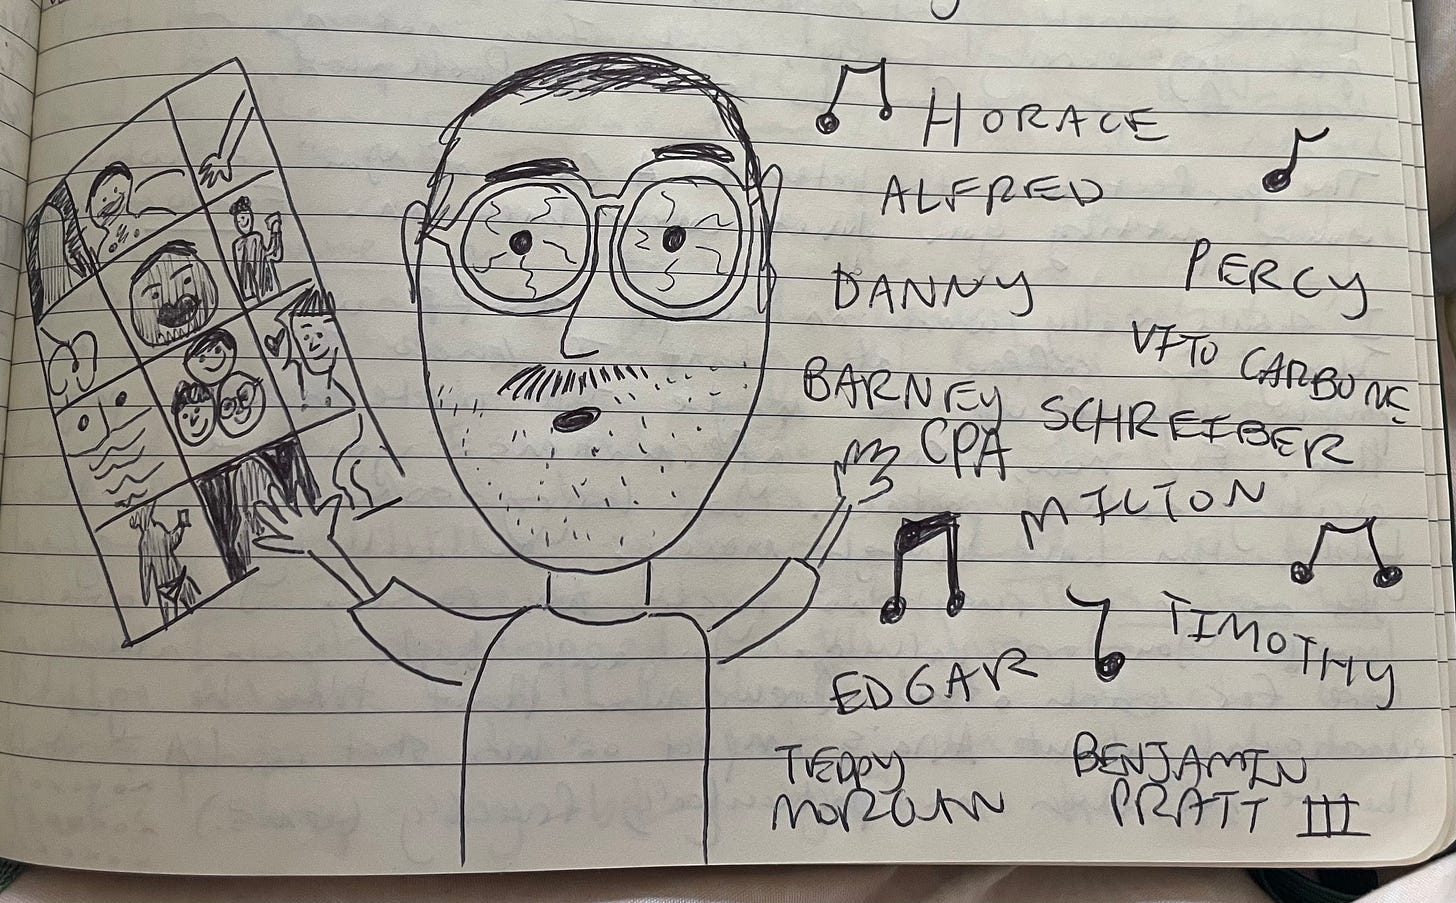 HORACE
ALFRED
DANNY
PERCY
VITO CARBONE
BARNEY SCHREIBER
CPA
MILTON
TIMOTHY
EDGAR
TEDDY
MORGAN
BENJAMIN
PRATT III